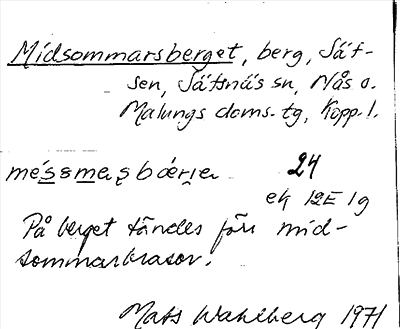 Midsommarsberget, berg, Säf-
sen, Säfsnäs sn, Nås o.
Malungs doms.tg, Kopp.l.
méssmasbǽrjəa 24
ek 12E 1g
På berget tändes förr mid-
sommarbrasor.
Mats Wahlberg 1971